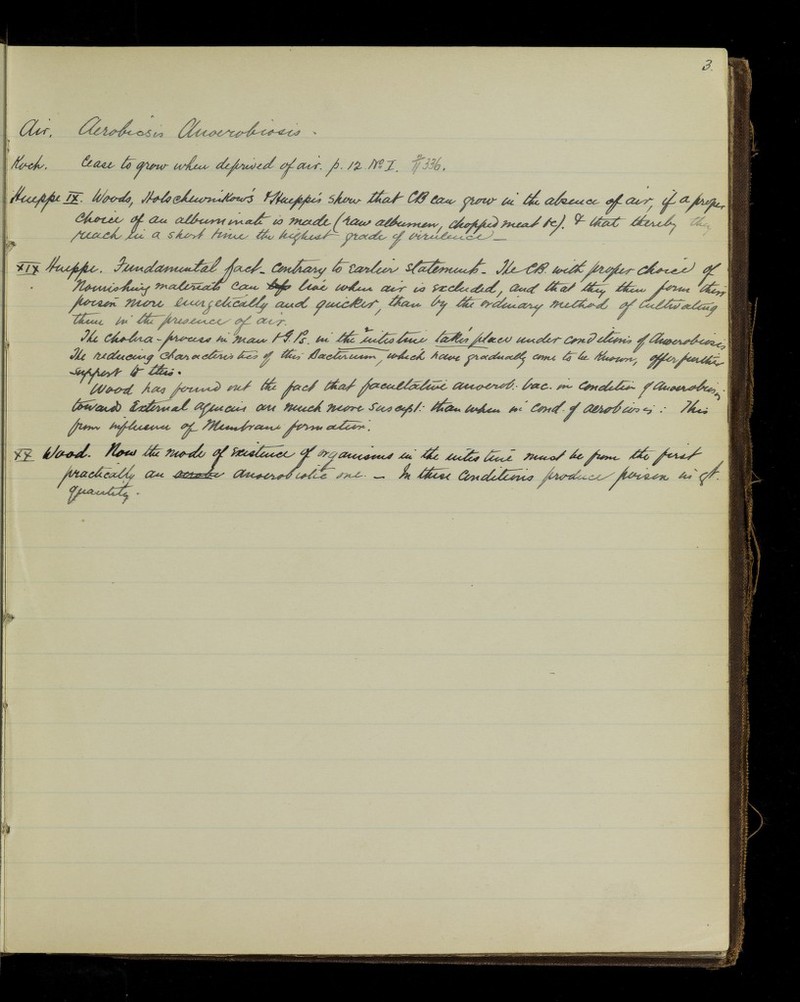 3.
Air. Aerobiosis Anaerobiosis.
Koch. Cease to grow when deprived of air. p. 12 No I. 336.
Hueppe IX. Woods, Holschewnikow's & Hueppe's show that CB can grow in the absence of air, if a proper
choice of an albuminate is made (raw albumen, chopped meat &c). & that thereby they
reach in a short time the highest grade of virulence —
XIX Hueppe. Fundamental fact - Contrary to Earlier statement - The CB with proper choice of
Nourishing materials can live when air is excluded, and that they then form their
poison more energetically and quicker, than by the ordinary method of cultivating
them in the presence of air.
The cholera-process in man & G.Ps. in the intestine takes place under conditions of Anaerobiosis
The reducing characteristics of this Bacterium, which have gradually come to be known, offer further
support to this.
Wood has found out the fact that facultative anaerob: bac. in condition of Anaerobiosis
towards External agencies are much more suscept: than when in cond. of aerobiosis: This
from influence of Membrane formation.
XX Wood. Now the mode of existence of organisms in the intestine must be from the first
practically an anaerobiotic one. — In these Conditions produce poison in gt.
quantity.